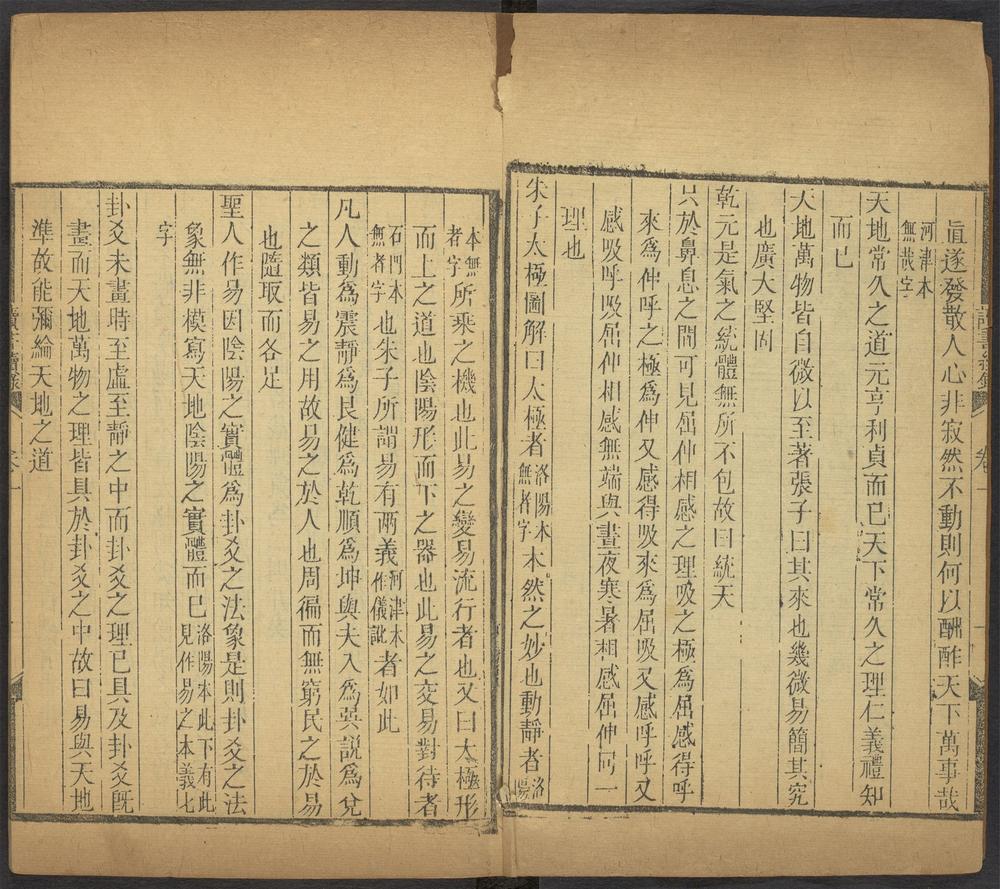 眞遂發散人心非寂然不動則何以酬酢天下萬事哉
河津本無哉字
天地常久之道元亨利貞而已天下常久之理仁義禮知
而已
天地萬物皆自微以至著張子曰其來也幾微易簡其究
也廣大堅固
乾元是氣之統體無所不包故曰統天
只於鼻息之間可見屈伸相感之理吸之極爲屈感得呼
來爲伸呼之極爲伸又感得吸來爲屈吸又感呼呼又
感吸呼吸屈伸相感無端與晝夜寒暑相感屈伸同一
理也
朱子太極圖解曰太極者洛陽本無者字本然之妙也動靜者洛陽
本無者字所乘之機也此易之變易流行者也又曰太極形
而上之道也陰陽形而下之器也此易之交易對待者
石門本無者字也朱子所謂易有兩義河津本作儀訛者如此
凡人動爲震靜爲艮健爲乾順爲坤與夫入爲巽説爲兌
之類皆易之用故易之於人也周徧而無窮民之於易
也隨取而各足
聖人作易因陰陽之實體爲卦爻之法象是則卦爻之法
象無非模寫天地陰陽之實體而已洛陽本此下有此見作易之本義七
字
卦爻未畫時至虛至靜之中而卦爻之理已具及卦爻旣
畫而天地萬物之理皆具於卦爻之中故曰易與天地
準故能彌綸天地之道